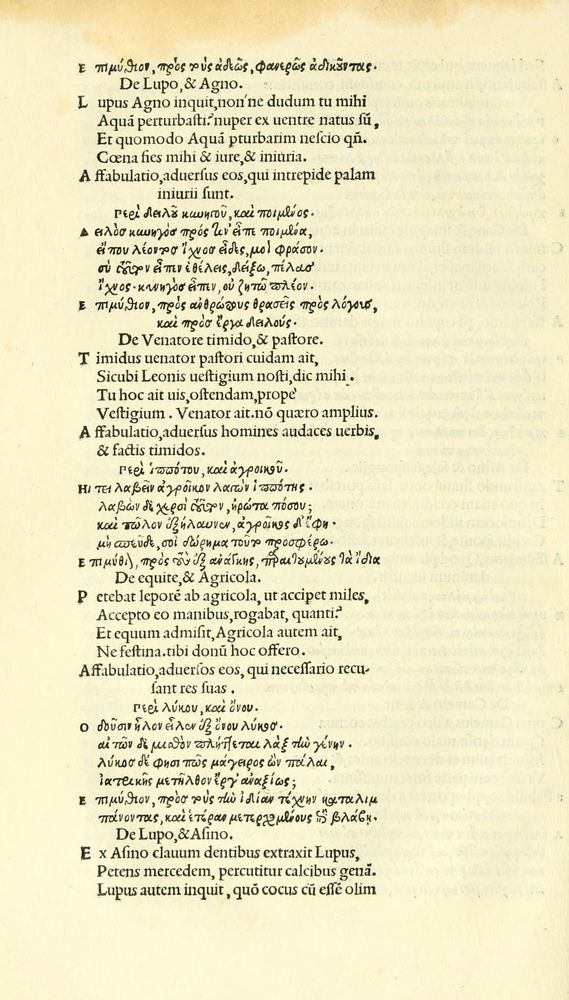 Ε πιμύθιον, πρὸς τοὺς ἀδεῶς, φανερῶς ἀδικοῦντας.
De Lupo, & Agno.
L upus Agno inquit, non'ne dudum tu mihi
Aquā perturbasti? nuper ex uentre natus sū,
Et quomodo Aquā perturbarim nescio qn̄.
Cœna fies mihi & iure, & iniuria.
A ffabulatio, aduersus eos, qui intrepide palam
iniurii sunt.
Περὶ δειλοῦ κυνηγοῦ, καὶ ποιμένος.
Δ ειλὸς κυνηγὸς πρὸς τίν' εἶπε ποιμένα,
εἴ που λέοντος ἴχνος εἶδες, μοὶ φράσον.
σὺ εἶπεν εἰ θέλεις, δείξω, πέλας
ἴχνος. κυνηγὸς εἶπεν, οὐ ζητῶ πλέον.
Ε πιμύθιον, πρὸς ἀνθρώπους θρασεῖς πρὸς λόγους,
καὶ πρὸς ἔργα δειλούς.
De Venatore timido, & pastore.
T imidus uenator pastori cuidam ait,
Sicubi Leonis uestigium nosti, dic mihi.
Tu hoc ait uis, ostendam, prope'
Vestigium. Venator ait. nō quæro amplius.
A ffabulatio, aduersus homines audaces uerbis,
& factis timidos.
Περὶ ἱππότου, καὶ ἀγροίκου.
Ηι τει λαβεῖν ἀγροῖκον λαγὼν ἱππότης.
λαβὼν δὲ χερσὶ, ἠρώτα πόσου;
καὶ πῶλον ἐξήλαυνεν, ἀγροῖκος δ' ἔφη.
μὴ σπεῦδε, σοὶ δώρημα τοῦτο προσφέρω.
Ε πιμύθι, πρὸς τοὺς ἐξ ἀνάγκης, τὰ ἴδια
De equite, & Agricola.
P etebat leporē ab agricola, ut accipet miles,
Accepto eo manibus, rogabat, quanti?
Et equum admisit, Agricola autem ait,
Ne festina. tibi donū hoc offero.
Affabulatio, aduersos eos, qui necessario recu-
sant res suas.
Περὶ λύκου, καὶ ὄνου.
Ο δοῦσιν ἧλον εἷλεν ἐξ ὄνου λύκος.
αἰτῶν δὲ μισθὸν πλήττεται λὰξ τὴν γένην.
λύκος δέ φησι πῶς μάγειρος ὢν πάλαι,
ἰατρικῆς μετῆλθον ἔργ' ἀναξίως;
Ε πιμύθιον, πρὸς τοὺς τὴν ἰδίαν τέχνην καταλιμ
πάνοντας, καὶ ἑτέραν μετερχομένους ἐπὶ βλάβῃ.
De Lupo, & Asino.
E x Asino clauum dentibus extraxit Lupus,
Petens mercedem, percutitur calcibus genā.
Lupus autem inquit, quō cocus cū essē olim